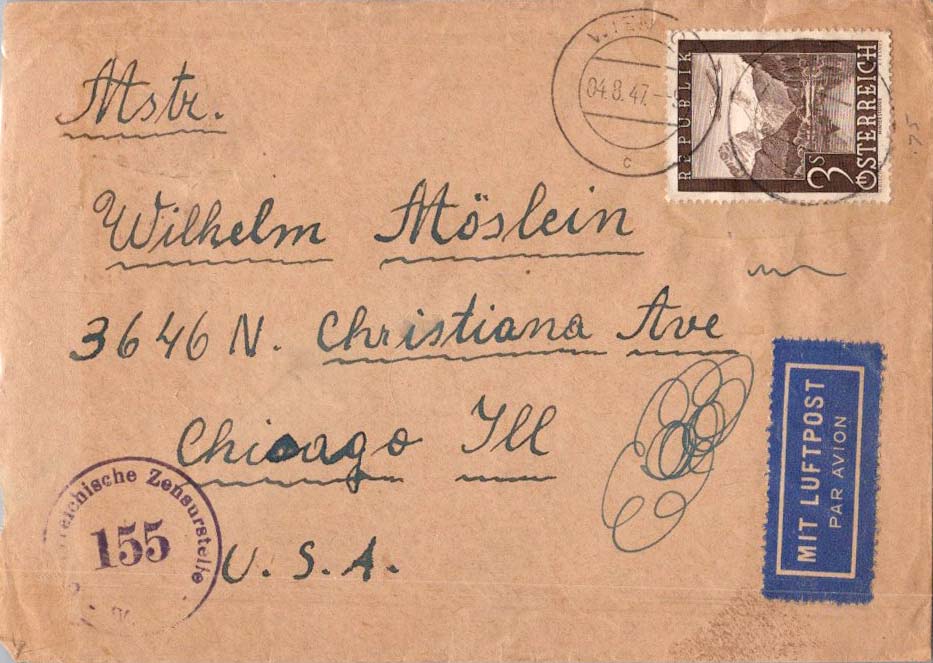 Mstr.
Wilhelm Möslein
3646 N. Christiana Ave
Chicago Ill
U.S.A.
WIEN
04.8.47.
c
REPUBLIK
ÖSTERREICH
3s
.75
MIT LUFTPOST
PAR AVION
reichische Zensurstelle
155